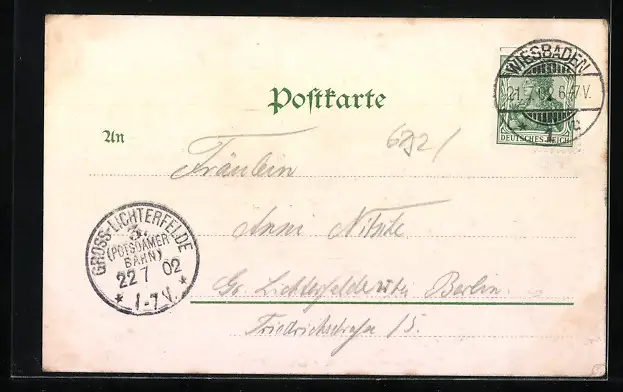 WIESBADEN
21.7.02 6-7V.
1 c
DEUTSCHES REICH
Postkarte
An
Fräulein
Anni Nitsche
Gr. Lichterfelde bei Berlin.
Friedrichstraße 15.
GROSS-LICHTERFELDE
3.
(POTSDAMER
BAHN)
22 7 02
* 1-7 V. *